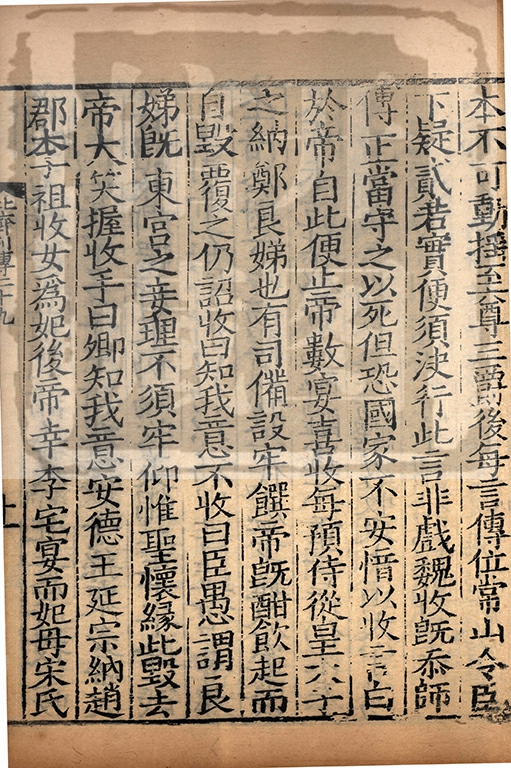 本不可動搖至尊三爵後每言傳位常山令臣
下疑貳若實便須決行此言非戲魏收旣忝師
傅正當守之以死但恐國家不安愔以收言白
於帝自此便止帝數宴喜收每預侍從皇太子
之納鄭良娣也有司備設牢饌帝旣酣飲起而
自毀覆之仍詔收曰知我意不收曰臣愚謂良
娣旣東宮之妾理不須牢仰惟聖懷緣此毀去
帝大笑握收手曰卿知我意安德王延宗納趙
郡李祖收女為妃後帝幸李宅宴而妃母宋氏
列傳二十九